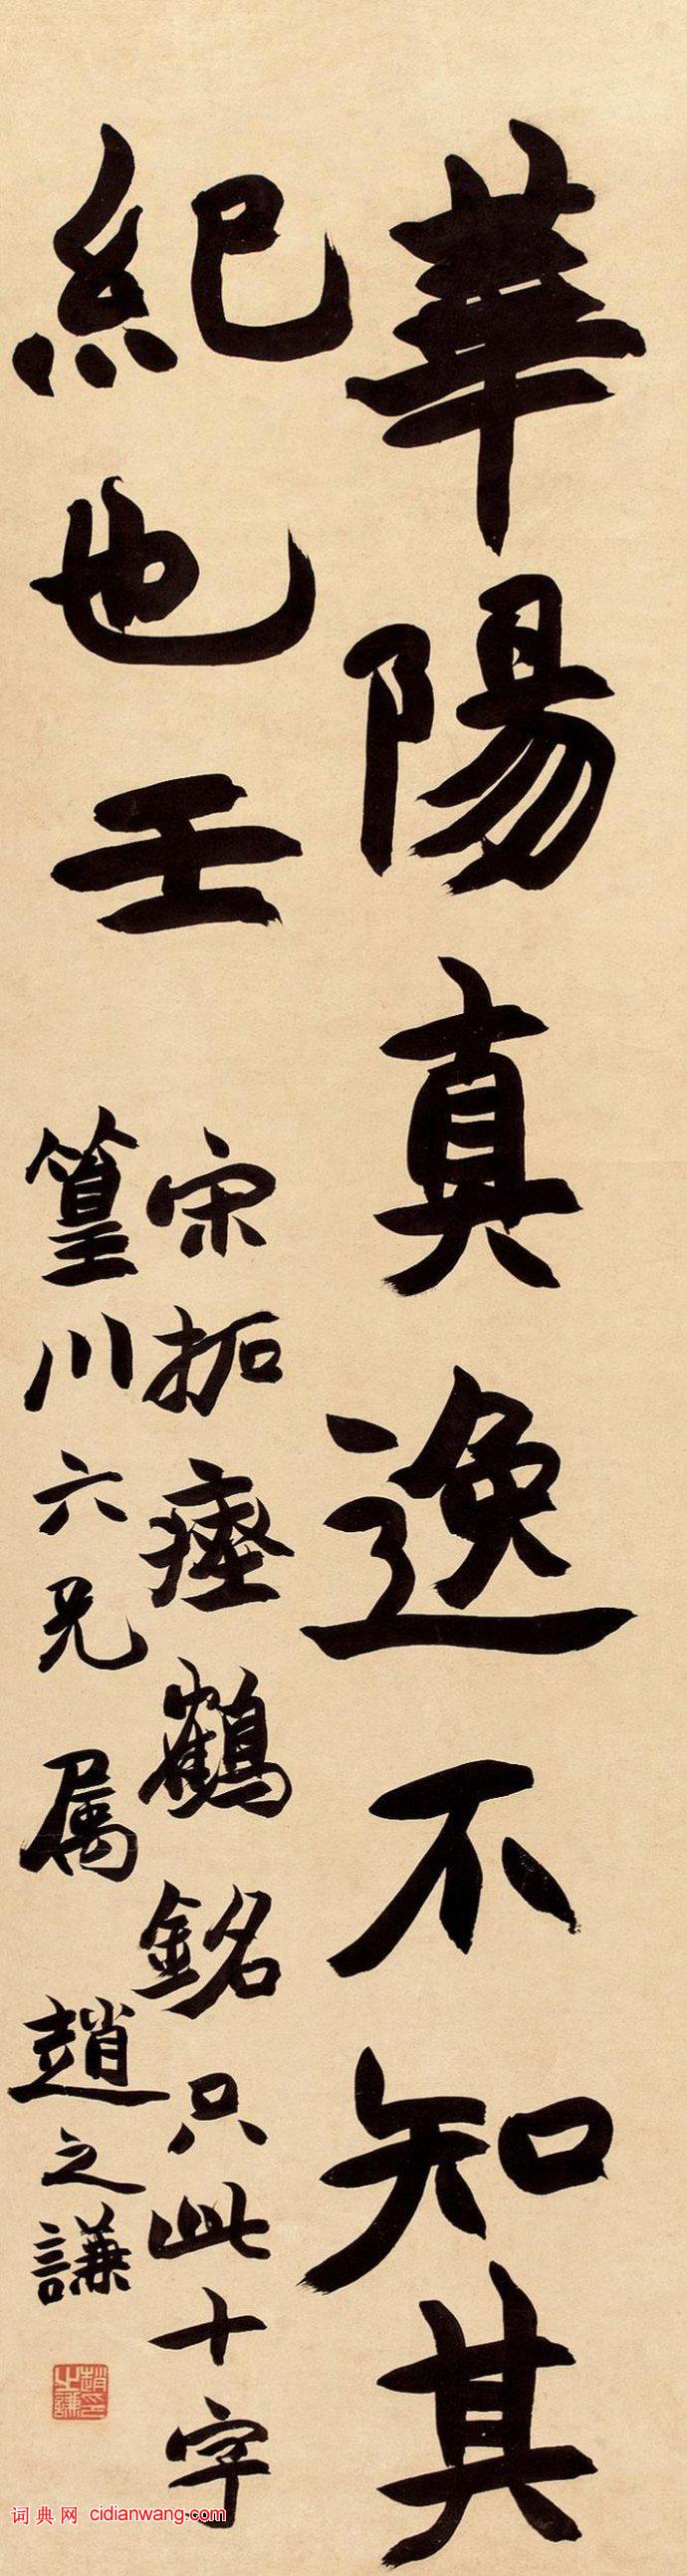 華陽真逸不知其
紀也壬
宋拓瘞鶴銘只此十字
篁川六兄属
趙之謙
趙之謙印
词典网 cidianwang.com